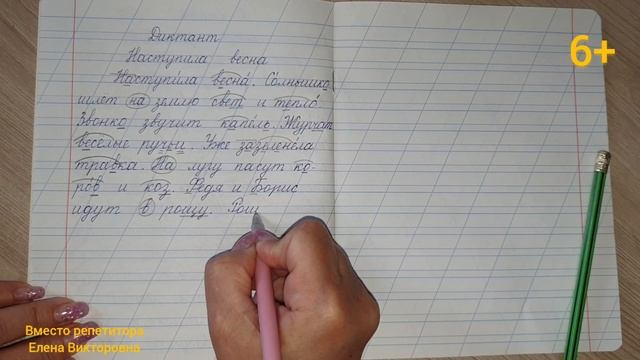 Диктант
6+
Наступила весна
Наступила весна. Солнышко
шлет на землю свет и тепло
Звонко звучит капель. Журчат
веселые ручьи. Уже зазеленела
травка. На лугу пасут ко-
ров и коз. Федя и Борис
идут в рощу. Рощ
Вместо репетитора
Елена Викторовна